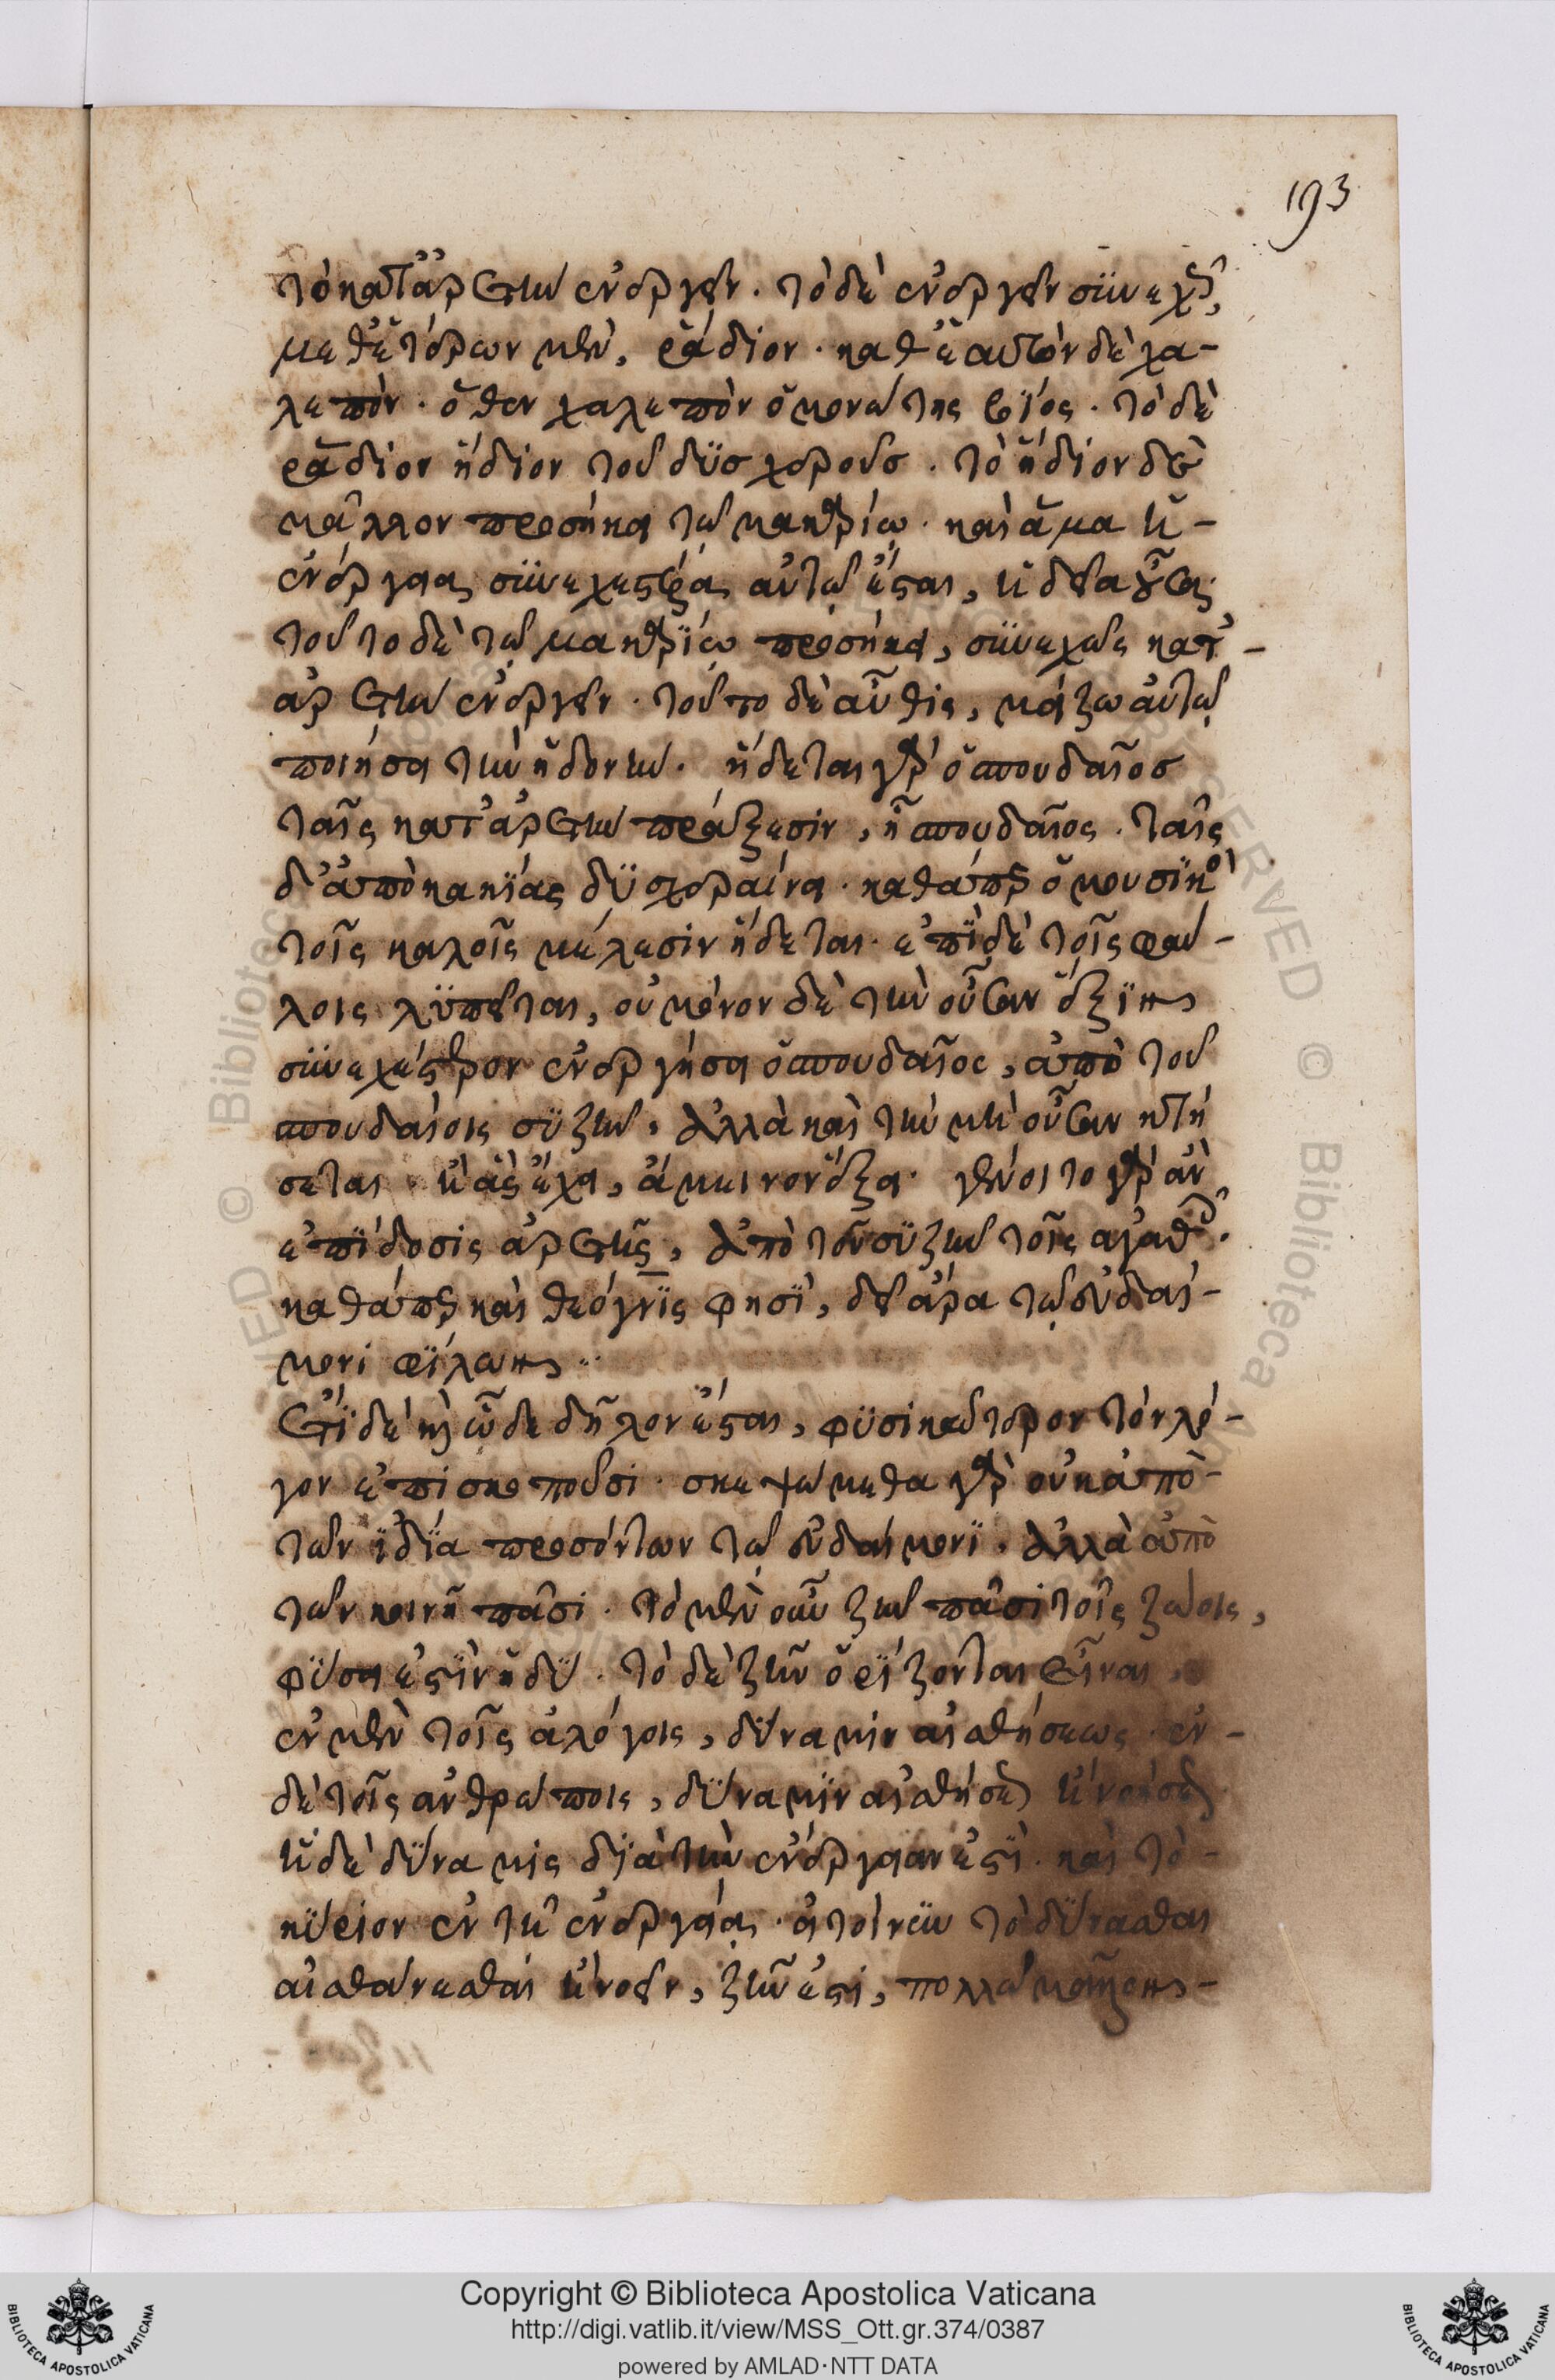 193
τὸ κατ' ἀρετὴν ἐνεργεῖν. τὸ δὲ ἐνεργεῖν συνεχῶς,
μεθ' ἑτέρων μὲν, ῥάδιον. καθ' ἑαυτὸν δὲ χα-
λεπόν. ὅθεν χαλεπὸν ὁ μονώτης βίος. τὸ δὲ
ῥάδιον ἥδιον τοῦ δυσχεροῦς. τὸ ἥδιον δὲ
μᾶλλον προσήκει τῷ μακαρίῳ. καὶ ἅμα ἡ
ἐνέργεια συνεχεστέρα αὐτῷ ἔσται, ἡδεῖα οὖσα.
τοῦτο δὲ τῷ μακαρίῳ προσήκει, συνεχῶς κατ'
ἀρετὴν ἐνεργεῖν. τοῦτο δὲ αὖθις, μείζω αὐτῷ
ποιήσει τὴν ἡδονήν. ἥδεται γὰρ ὁ σπουδαῖος
ταῖς κατ' ἀρετὴν πράξεσιν, ᾗ σπουδαῖος. ταῖς
δ' ἀπὸ κακίας δυσχεραίνει. καθάπερ ὁ μουσικὸς
τοῖς καλοῖς μέλεσιν ἥδεται. ἐπὶ δὲ τοῖς φαύ-
λοις λυπεῖται, οὐ μόνον δὲ τὴν οὖσαν ἕξιν
συνεχέστερον ἐνεργήσει ὁ σπουδαῖος, ἀπὸ τοῦ
σπουδαίοις συζῆν, ἀλλὰ καὶ τὴν μὴ οὖσαν κτή
σεται ἢ ἧς ἔχει, ἀμείνον' ἕξει. γένοιτο γὰρ ἂν
ἐπίδοσις ἀρετῆς, ἀπὸ τοῦ συζῆν τοῖς ἀγαθοῖς.
καθάπερ καὶ θεόγνις φησὶ, δεῖ ἄρα τῷ εὐδαί-
μονι φίλων
Ἔτι δὲ καὶ ὧδε δῆλον ἔσται, φυσικώτερον τὸν λό-
γον ἐπισκοποῦσι. σκεψώμεθα γὰρ οὐκ ἀπὸ
τῶν ἰδίᾳ προσόντων τῷ εὐδαίμονι. ἀλλὰ ἀπὸ
τῶν κοινῇ πᾶσι. τὸ μὲν οὖν ζῆν πᾶσι τοῖς ζώοις,
φύσει ἐστὶν ἡδύ. τὸ δὲ ζῆν ὁρίζονται εἶναι,
ἐν μὲν τοῖς ἀλόγοις, δύναμιν αἰσθήσεως. ἐν
δὲ τοῖς ἀνθρώποις, δύναμιν αἰσθήσεως ἢ νοήσεως
ἡ δὲ δύναμις διὰ τὴν ἐνέργειαν ἐστὶ. καὶ τὸ
κύριον ἐν τῇ ἐνεργείᾳ. εἰ τοίνυν τὸ δύνασθαι
αἰσθάνεσθαι ἢ νοεῖν, ζῆν ἐστι, πολλῷ μεῖζον
Copyright © Biblioteca Apostolica Vaticana
http://digi.vatlib.it/view/MSS_Ott.gr.374/0387
powered by AMLAD·NTT DATA
BIBLIOTECA APOSTOLICA VATICANA
BIBLIOTECA APOSTOLICA VATICANA